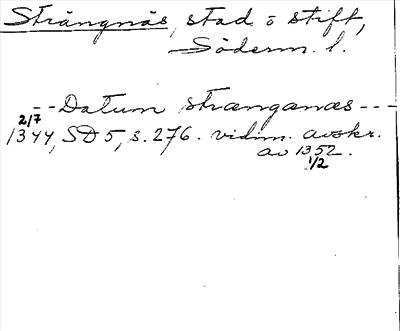 Strängnäs, stad o stift,
Söderm. l.
--Datum strængænæs---
2/7
1344, SD 5, s. 276. vidim. avskr.
av 1352.
1/2